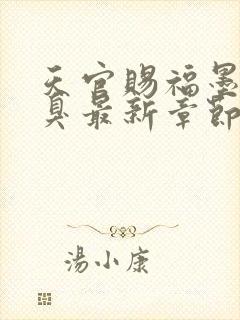 天官賜福墨
臭最新章節
湯小康